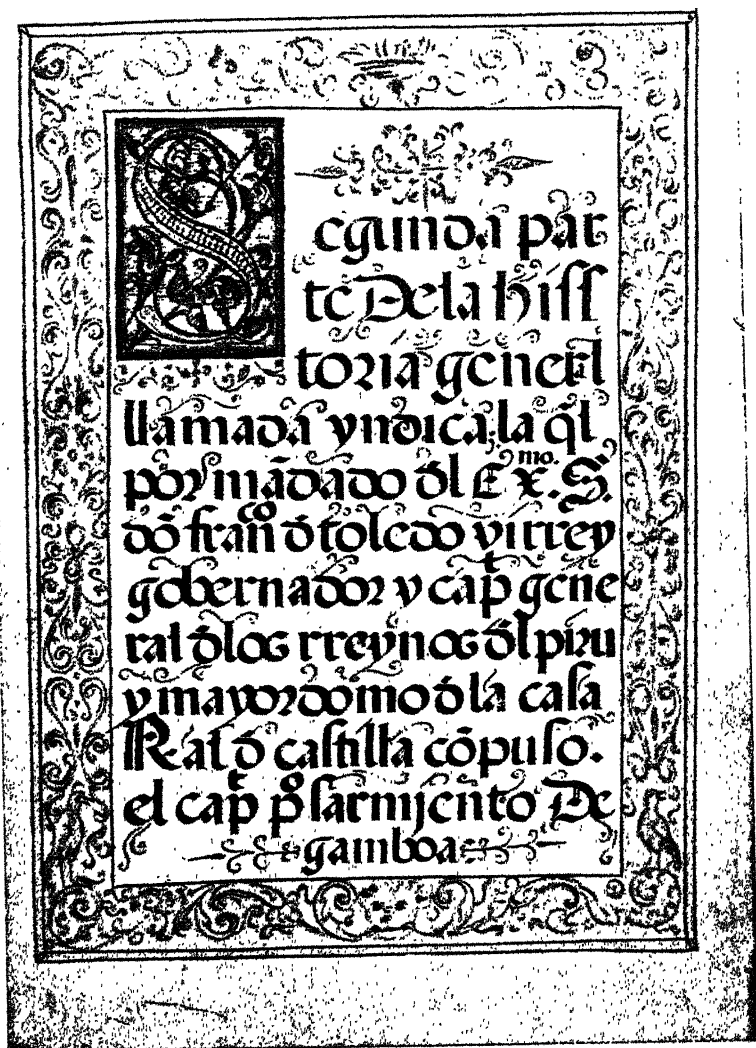 Segunda par
te De la hiss
toria generl
llamada yndica, la ql̄
por mādado d̄l Exmo. S.
dō franco d̄ toledo virrey
gobernador y capt gene
ral d̄los rreynos d̄l piru
y mayordomo d̄ la casa
Real d̄ castilla cōpuso.
el capt po sarmiento De
gamboa